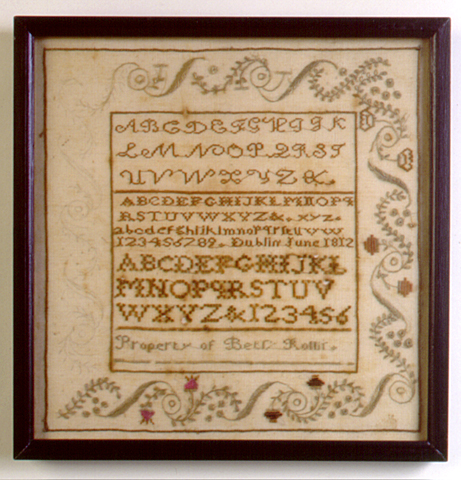 ABCDEFGHIJK
LMNOPQRST
UVWXYZ&.
ABCDEFGHIJKLMNOPQ
RSTUVWXYZ&. xyz.
abcdefghijklmnopqrstuvw
123456789. Dublin June 1812
ABCDEFGHIJKL
MNOPQRSTUV
WXYZ&123456
Property of